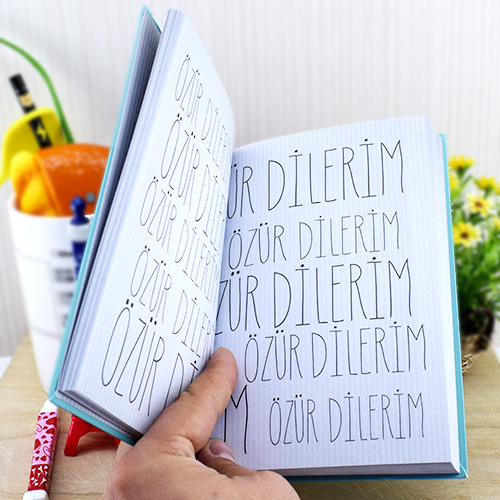 ÖZÜR DİLERİM
ÖZÜR DİLERİM
ÖZÜR DİLERİM
ÖZÜR DİLERİM
ÖZÜR DİLERİM
ÜR DİLERİM
ÖZÜR DİLERİM
ÖZÜR DİLERİM
ÖZÜR DİLERİM
M ÖZÜR DİLERİM